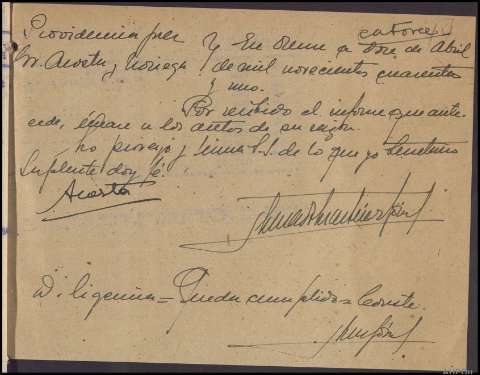 catorce
Providencia juez } En Orense a doce de Abril
Sr. Acosta y Noriega } de mil novecientos cuarenta
y uno.
Por recibido el informe que ante-
cede, únase a los autos de su razón.
Lo proveyó y firma S.S. de lo que yo Secretario
Suplente doy fé.
Acosta
Diligencia = Queda cumplido = Conste.